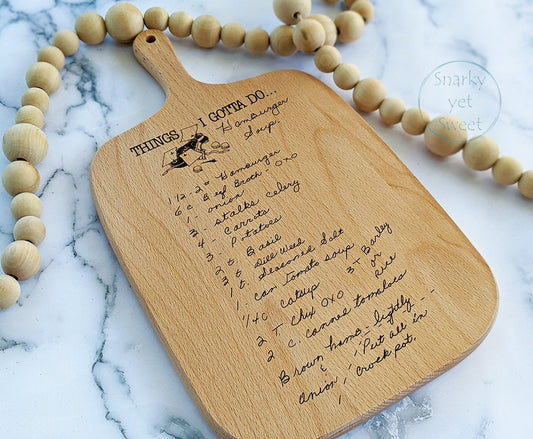 THINGS I GOTTA DO...
Hamburger
Soup.
1 1/2 - 2 # Hamburger
6 c. Beef Broth - OXO
1 - onion
3 - stalks celery
4 - Carrots
3 - Potatoes
2 t Basil
2 t Dill Weed
1 t. Seasoned Salt
1 - can tomato soup
1/4 c catsup 3 T Barley
or
rice
2 T Chix OXO
2 c. canned tomatoes
Brown hamb - lightly - -
onion, " " Put all in
1 crock pot.
Snarky
yet
Sweet